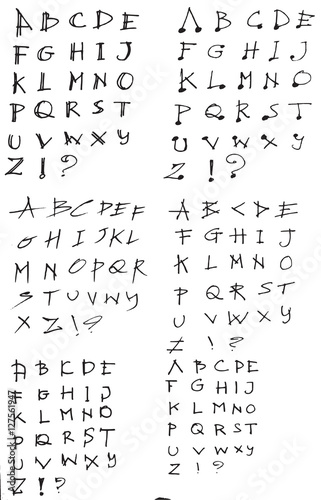 A B C D E
F G H I J
K L M N O
P Q R S T
U V W X Y
Z ! ?
A B C D E
F G H I J
K L M N O
P Q R S T
U V W X Y
Z ! ?
A B C D E F
G H I J K L
M N O P Q R
S T U V W Y
X Z ! ?
A B C D E
F G H I J
K L M N O
P Q R S T
U V W X Y
Z ! ?
A B C D E
F G H I J
K L M N O
P Q R S T
U V W X Y
Z ! ?
A B C D E
F G H I J
K L M N O
P Q R S T
U V W X Y
Z ! ?
127561947
Adobe Stock